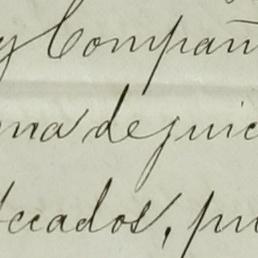 y Compañ
ma de juic
ecados, pu